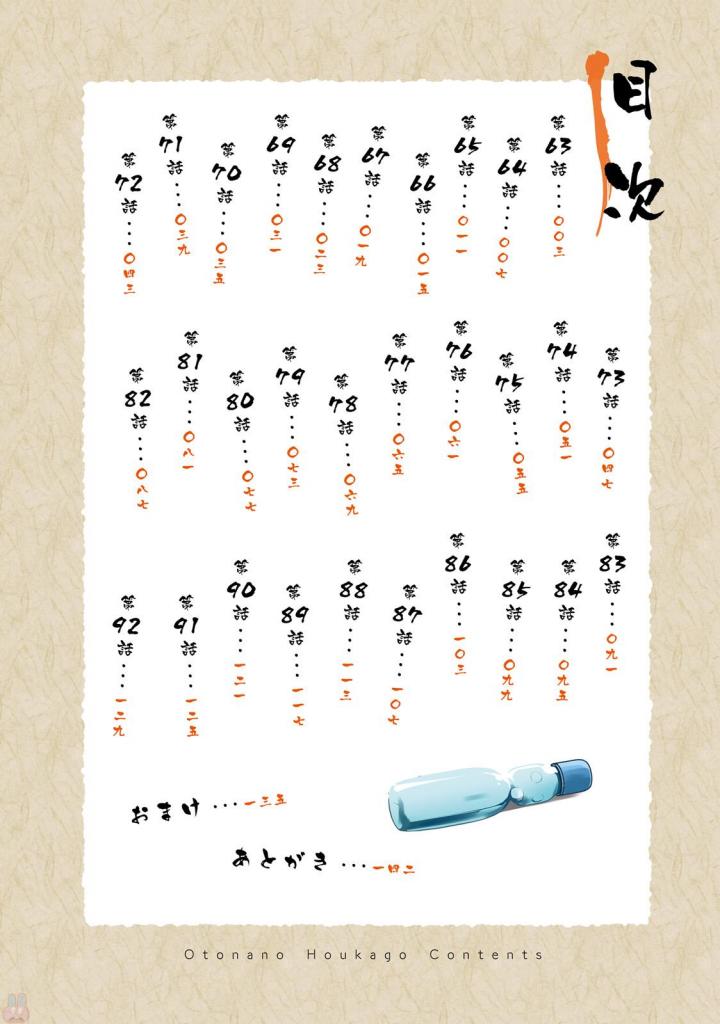 目次
第63話…〇〇三
第64話…〇〇七
第65話…〇一一
第66話…〇一五
第67話…〇一九
第68話…〇二三
第69話…〇三一
第70話…〇三五
第71話…〇三九
第72話…〇四三
第73話…〇四七
第74話…〇五一
第75話…〇五五
第76話…〇六一
第77話…〇六五
第78話…〇六九
第79話…〇七三
第80話…〇七七
第81話…〇八一
第82話…〇八七
第83話…〇九一
第84話…〇九五
第85話…〇九九
第86話…一〇三
第87話…一〇七
第88話…一一三
第89話…一一七
第90話…一二一
第91話…一二五
第92話…一二九
おまけ…一三五
あとがき…一四二
Otonano Houkago Contents